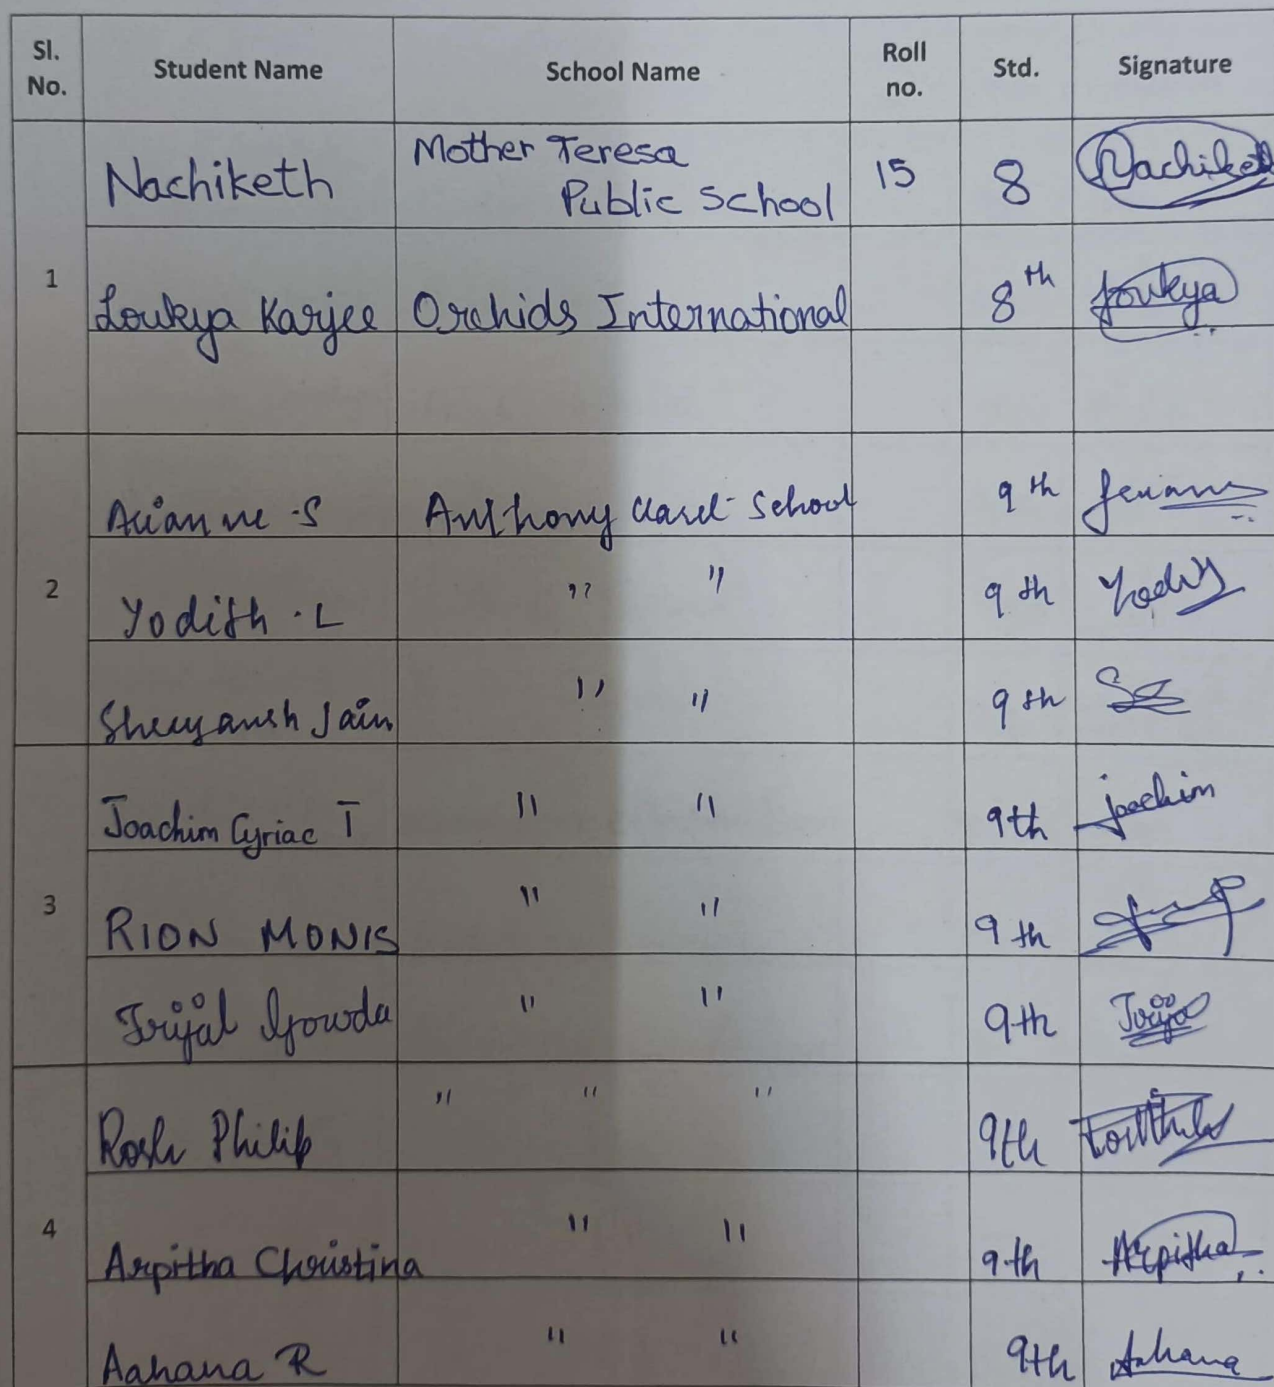 Sl. No. Student Name School Name Roll no. Std. Signature
1
Nachiketh Mother Teresa Public School 15 8 Nachiketh
Loukya Karjee Orchids International 8th Loukya
2
Arianne .S Anthony School 9th
Yodith .L " " 9th Yodith
Shreyansh Jain " " 9th
3
Joachim Cyriac T " " 9th joachim
RION MONIS " " 9th
Trijal Gowda " " 9th
4
Rosh Philip " " " 9th
Arpitha Christina " " 9th Arpitha
Aahana R " " 9th Aahana